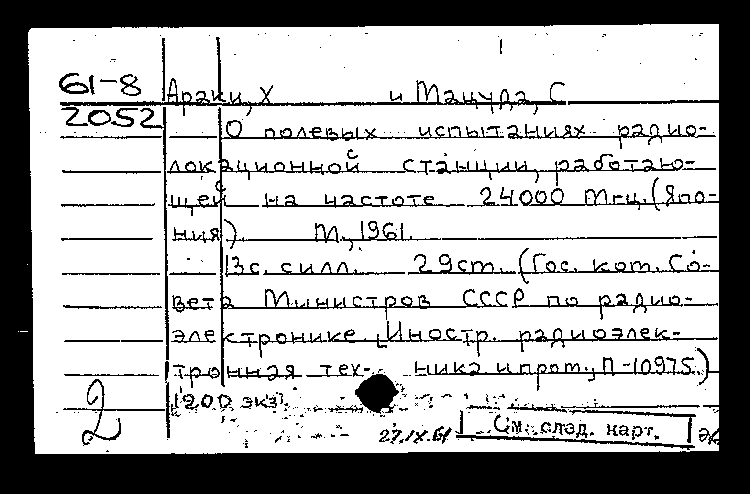 61-8
2052
Араки, Х и Мацуда, С
О полевых испытаниях радио-
локационной станции, работаю-
щей на частоте 24000 Мгц. (Япо-
ния). М., 1961.
13 с. силл. 29 ст. (Гос. ком. Со-
вета Министров СССР по радио-
электронике. Иностр. радиоэлек-
тронная тех- ника и пром., П-10975.)
1200 экз.
2
27.IX.61 См. след. карт.